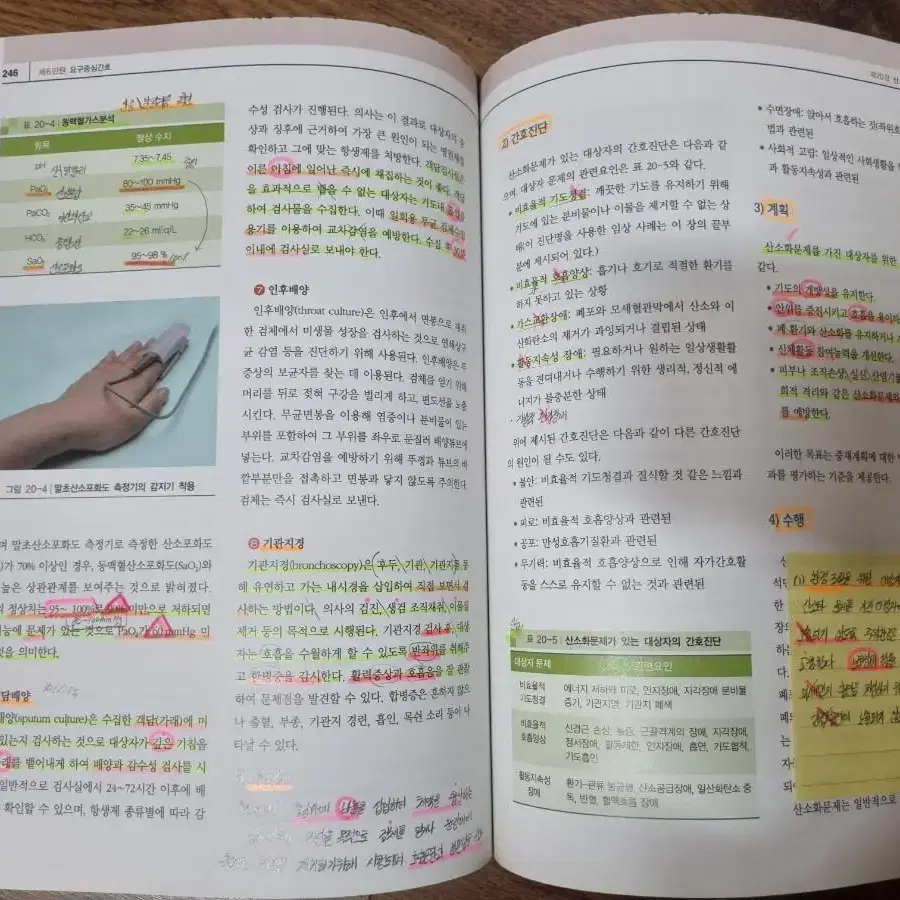 246 제6단원 요구중심간호
표 20-4 | 동맥혈가스분석
항목 정상 수치
pH 7.35~7.45
PaO₂ 80~100 mmHg
PaCO₂ 35~45 mmHg
HCO₃⁻ 22~26 mEq/L
SaO₂ 95~98 %
그림 20-4 | 말초산소포화도 측정기의 감지기 착용
며 말초산소포화도 측정기로 측정한 산소포화도
가 70% 이상인 경우, 동맥혈산소(SaO₂)와
높은 상관관계를 보여주는 것으로 밝혀졌다.
정상치는 95~100%로 90% 미만으로 저하되면
기능에 문제가 있는 것으로 PaO₂가 60 mmHg 미
것을 의미한다.
담배양
배양(sputum culture)은 수집한 객담(가래)에 미
있는지 검사하는 것으로 대상자가 깊은 기침을
래를 뱉어내게 하여 배양과 감수성 검사를 시
일반적으로 검사실에서 24~72시간 이후에 배
확인할 수 있으며, 항생제 종류별에 따라 감
수성 검사가 진행된다. 의사는 이 결과로 대상자의 증
상과 징후에 근거하여 가장 큰 원인이 되는 병원체를
확인하고 그에 맞는 항생제를 처방한다. 객담검사물은
이른 아침에 일어난 즉시에 채집하는 것이 좋다. 객담
을 효과적으로 뱉을 수 없는 대상자는 기도내 흡인을
하여 검사물을 수집한다. 이때 일회용 무균 검체수집
용기를 이용하여 교차감염을 예방한다. 수집 후 30분
이내에 검사실로 보내야 한다.
❼ 인후배양
인후배양(throat culture)은 인후에서 면봉으로 채취
한 검체에서 미생물 성장을 검사하는 것으로 연쇄상구
균 감염 등을 진단하기 위해 사용된다. 인후배양은 무
증상의 보균자를 찾는 데 이용된다. 검체를 얻기 위해
머리를 뒤로 젖혀 구강을 벌리게 하고, 편도선을 노출
시킨다. 무균면봉을 이용해 염증이나 분비물이 있는
부위를 포함하여 그 부위를 좌우로 문질러 배양튜브에
넣는다. 교차감염을 예방하기 위해 뚜껑과 튜브의 바
깥부분만을 접촉하고 면봉과 닿지 않도록 주의한다.
검체는 즉시 검사실로 보낸다.
❽ 기관지경
기관지경(bronchoscopy)은 후두, 기관, 기관지를 통
해 유연하고 가는 내시경을 삽입하여 직접 보면서 검
사하는 방법이다. 의사의 검진, 생검 조직채취, 이물질
제거 등의 목적으로 시행된다. 기관지경 검사 후, 대상
자는 호흡을 수월하게 할 수 있도록 반좌위를 취해주
고 한병증을 감시한다. 활력증상과 호흡음을 잘 관찰
하여 문제점을 발견할 수 있다. 합병증은 흔하지 않으
나 출혈, 부종, 기관지 경련, 흡인, 목쉰 소리 등이 나
타날 수 있다.
2) 간호진단
산소화문제가 있는 대상자의 간호진단은 다음과 같
으며, 대상자 문제의 관련요인은 표 20-5와 같다.
• 비효율적 기도청결: 깨끗한 기도를 유지하기 위해
기도에 있는 분비물이나 이물을 제거할 수 없는 상
태(이 진단명을 사용한 임상 사례는 이 장의 끝부
분에 제시되어 있다.)
• 비효율적 호흡양상: 흡기나 호기로 적절한 환기를
하지 못하고 있는 상황
• 가스교환장애: 폐포와 모세혈관막에서 산소와 이
산화탄소의 제거가 과잉되거나 결핍된 상태
• 활동지속성 장애: 필요하거나 원하는 일상생활활
동을 견뎌내거나 수행하기 위한 생리적, 정신적 에
너지가 불충분한 상태
위에 제시된 간호진단은 다음과 같이 다른 간호진단
의 원인이 될 수도 있다.
• 불안: 비효율적 기도청결과 질식할 것 같은 느낌과
관련된
• 피로: 비효율적 호흡양상과 관련된
• 공포: 만성호흡기질환과 관련된
• 무기력: 비효율적 호흡양상으로 인해 자가간호활
동을 스스로 유지할 수 없는 것과 관련된
표 20-5 | 산소화문제가 있는 대상자의 간호진단
대상자 문제 관련요인
비효율적 기도청결 에너지 저하와 피로, 인지장애, 지각장애 분비물
증가, 기관지연, 기관지 폐색
비효율적 호흡양상 신경근 손상, 통증, 근골격계의 장애, 지각장애,
정서장애, 활동제한, 인지장애, 흡연, 기도협착,
기도흡인
활동지속성 장애 환기-관류 불균형, 산소공급장애, 일산화탄소 중
독, 빈혈, 혈액소름 장애
제20장
• 수면장애: 앉아서 호흡하는 것(좌위호
법과 관련된
• 사회적 고립: 일상적인 사회생활을
과 활동지속성과 관련된
3) 계획
산소화문제를 가진 대상자를 위한
같다.
• 기도의 개방성을 유지한다.
• 안위를 증진시키고 호흡을 용이하
• 폐 환기와 산소화를 유지하거나
• 신체활동 참여능력을 개선한다.
• 피부나 조직손상, 실신, 산염기불
회적 격리와 같은 산소화문제와
를 예방한다.
이러한 목표는 중재계획에 대한
과를 평가하는 기준을 제공한다.
4) 수행
산소화문제는 일반적으로